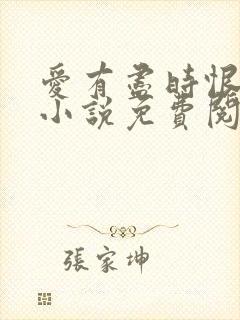 愛有盡時恨
小說免費閱
張家坤